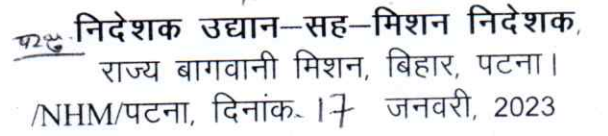 निदेशक उद्यान–सह–मिशन निदेशक,
राज्य बागवानी मिशन, बिहार, पटना।
/NHM/पटना, दिनांक. 17 जनवरी, 2023